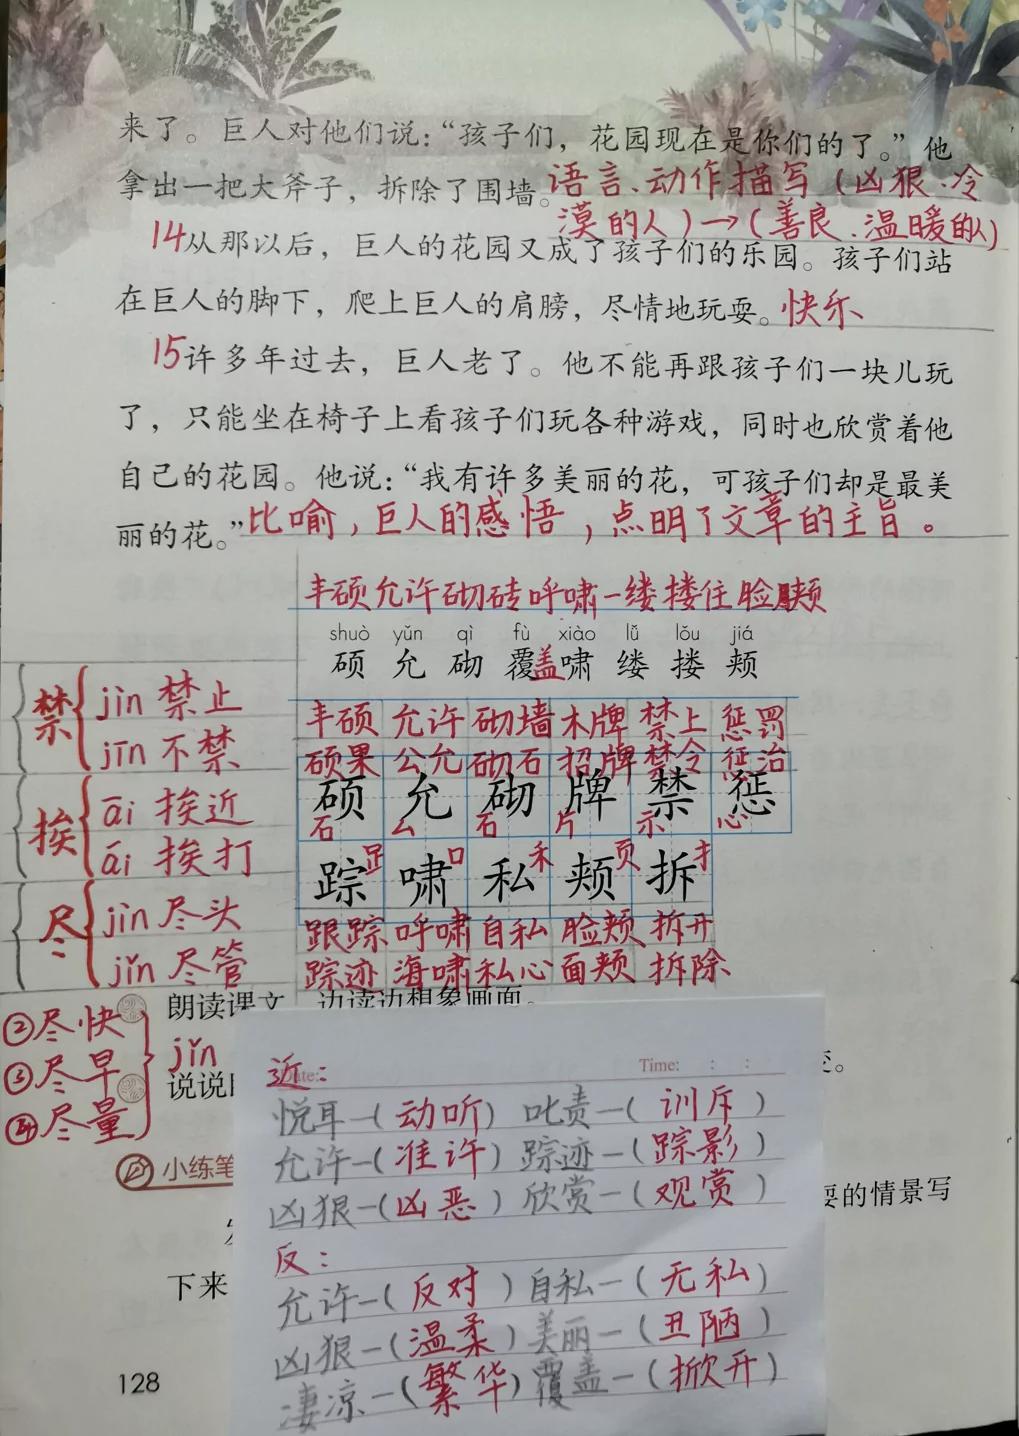 来了。巨人对他们说：“孩子们，花园现在是你们的了。”他
拿出一把大斧子，拆除了围墙。语言、动作描写（凶狠、冷
漠的人）→（善良、温暖的人）
14从那以后，巨人的花园又成了孩子们的乐园。孩子们站
在巨人的脚下，爬上巨人的肩膀，尽情地玩耍。快乐
15许多年过去，巨人老了。他不能再跟孩子们一块儿玩
了，只能坐在椅子上看孩子们玩各种游戏，同时也欣赏着他
自己的花园。他说：“我有许多美丽的花，可孩子们却是最美
丽的花。”比喻，巨人的感悟，点明了文章的主旨。
丰硕允许砌砖呼啸一缕搂住脸颊
shuò yǔn qì fù xiào lǚ lǒu jiá
硕 允 砌 覆盖啸 缕 搂 颊
禁 jìn 禁止
jīn 不禁
挨 āi 挨近
āi 挨打
尽 jìn 尽头
jǐn 尽管
②尽快
③尽早
④尽量
jǐn
丰硕 允许 砌墙 木牌 禁止 惩罚
硕果 公允 砌石 招牌 禁令 惩治
硕 允 砌 牌 禁 惩
石 厶 石 片 示 心
踪 啸 私 颊 拆
足 口 禾 页 扌
跟踪 呼啸 自私 脸颊 拆开
踪迹 海啸 私心 面颊 拆除
朗读课文，边读边想象画面。
说说
变。
小练笔
耍的情景写
下来
近：
Time: : :
悦耳—（动听） 叱责—（训斥）
允许—（准许） 踪迹—（踪影）
凶狠—（凶恶） 欣赏—（观赏）
反：
允许—（反对） 自私—（无私）
凶狠—（温柔） 美丽—（丑陋）
凄凉—（繁华） 覆盖—（掀开）
128